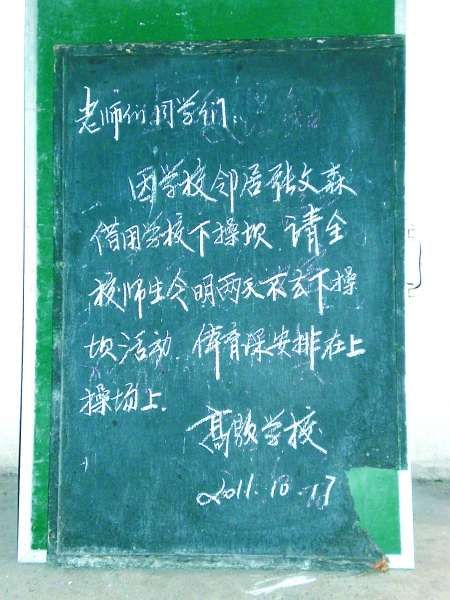 老师们同学们:
因学校邻居张文森
借用学校下操坝.请全
校师生今明两天不去下操
坝活动.体育课安排在上
操场上.
学校
2011.10.17